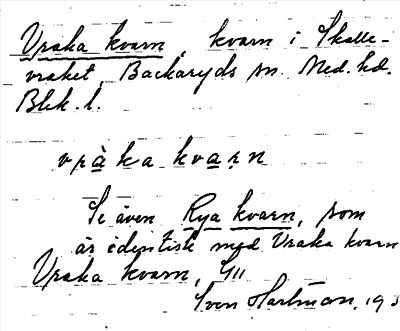 Vraka kvarn, kvarn i Skalle-
vraket, Backaryds sn. Med. hd.
Blek. l.
vràka kvaṛn
Se även Rya kvarn, som
är identisk med Vraka kvarn
Vraka kvarn, G11
Sven Hartman, 193